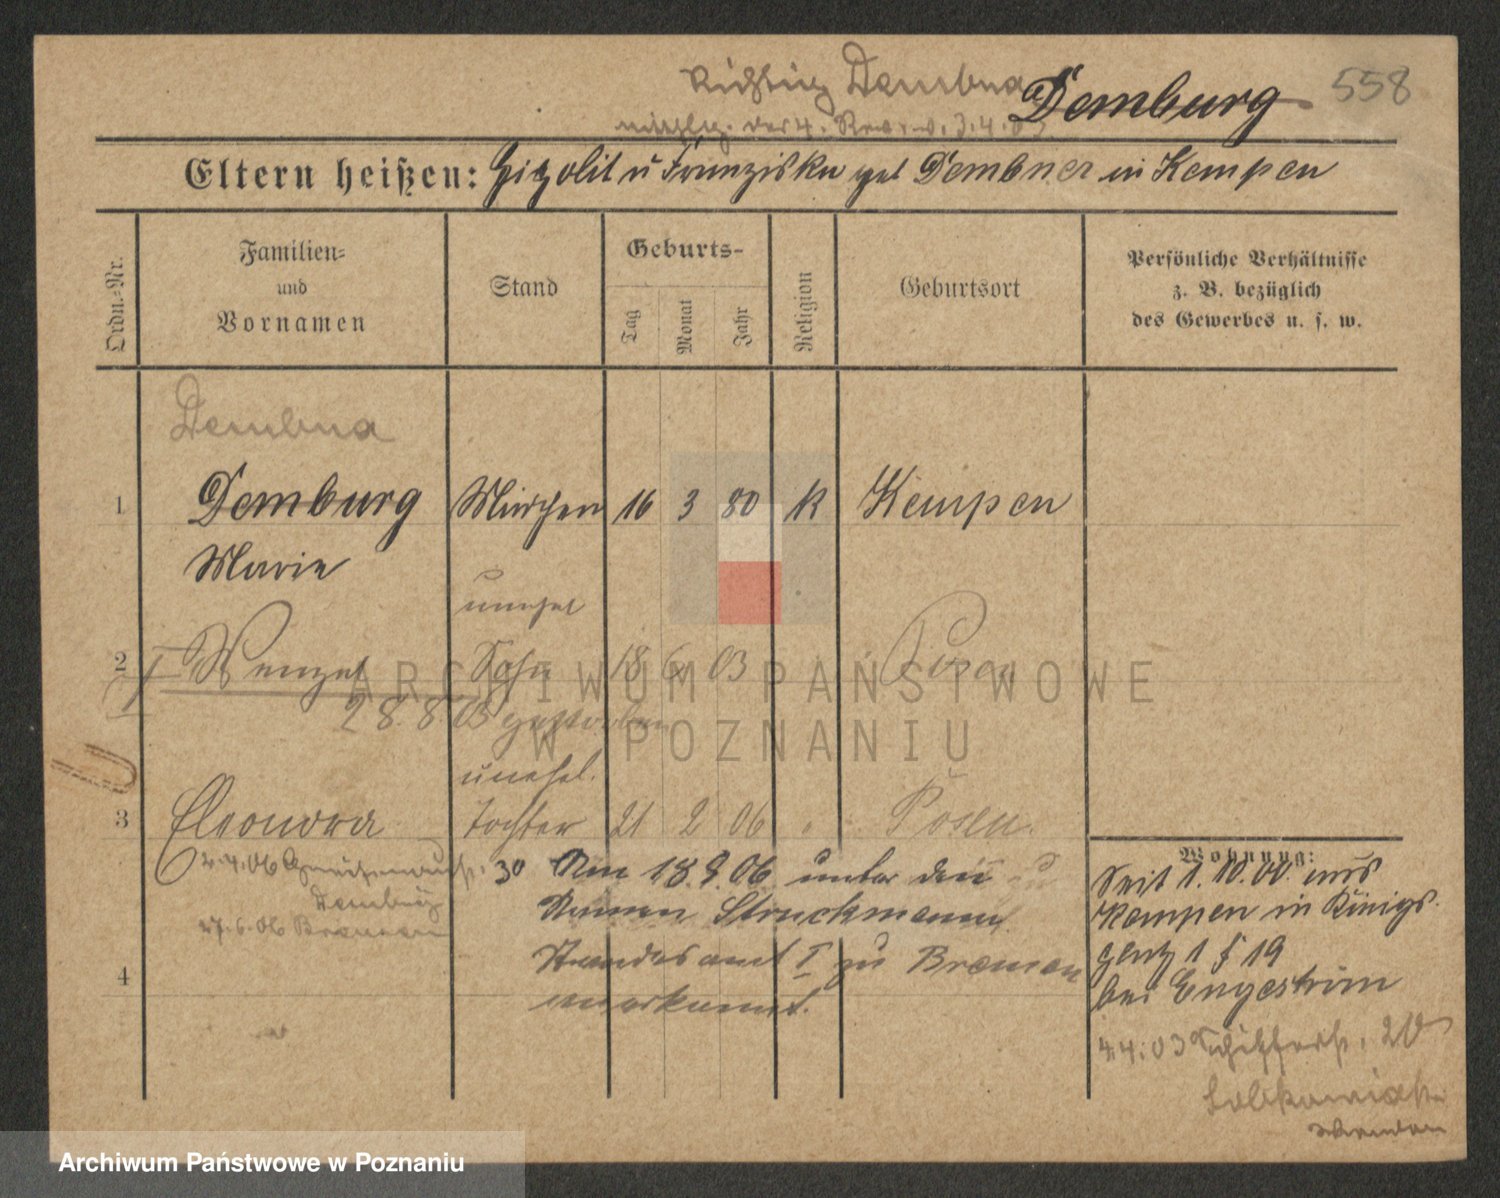 richtig Dembna
Demburg
558
mittlg. des 4. Rev. v. 3.4.03
Eltern heißen: Hipolit u Franziska geb Dembner in Kempen
Ordn.-Nr.
Familien-
und
Vornamen
Stand
Geburts-
Tag
Monat
Jahr
Religion
Geburtsort
Persönliche Verhältnisse
z. B. bezüglich
des Gewerbes u. s. w.
Dembna
1 Demburg Mädchen 16 3 80 K Kempen
Marie
unehel
2 Wenzel Sohn 18 6 03 Posen
28.8.03 gestorben
unehel.
3 Eleonora Tochter 21 2 06 " Posen.
2.4.06 30
Demburg
27.6.06 Bremen
Am 18.9.06 unter den
Namen Struckmann
Standesamt I zu Bremen
anerkannt.
4
Wohnung:
Seit 1.10.00 aus
Kempen in Königs-
platz 1 § 19
bei Engeström
4.4.03 20
ARCHIWUM PAŃSTWOWE
W POZNANIU
Archiwum Państwowe w Poznaniu